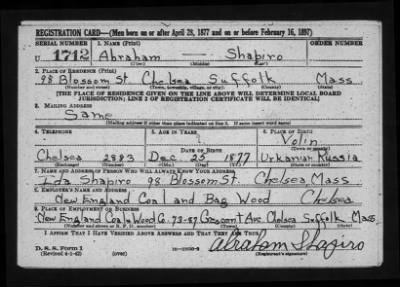 REGISTRATION CARD—(Men born on or after April 28, 1877 and on or before February 16, 1897)
SERIAL NUMBER 1. NAME (Print) ORDER NUMBER
U 1712 Abraham — Shapiro
(First) (Middle) (Last)
2. PLACE OF RESIDENCE (Print)
98 Blossom St. Chelsea Suffolk Mass
(Number and street) (Town, township, village, or city) (County) (State)
[THE PLACE OF RESIDENCE GIVEN ON THE LINE ABOVE WILL DETERMINE LOCAL BOARD
JURISDICTION; LINE 2 OF REGISTRATION CERTIFICATE WILL BE IDENTICAL]
3. MAILING ADDRESS
Same
[Mailing address if other than place indicated on line 2. If same insert word same]
4. TELEPHONE 5. AGE IN YEARS 6. PLACE OF BIRTH
Volin
DATE OF BIRTH (Town or county)
Chelsea 2883 Dec. 25 1877 Urkanian Russia
(Exchange) (Number) (Mo.) (Day) (Yr.) (State or country)
7. NAME AND ADDRESS OF PERSON WHO WILL ALWAYS KNOW YOUR ADDRESS
Ida Shapiro 98 Blossom St. Chelsea, Mass
8. EMPLOYER'S NAME AND ADDRESS
New England Coal and Bag Wood Chelsea
9. PLACE OF EMPLOYMENT OR BUSINESS
New England Coal & Wood Co. 73-87 Crescent Ave Chelsea Suffolk Mass.
(Number and street or R. F. D. number) (Town) (County) (State)
I AFFIRM THAT I HAVE VERIFIED ABOVE ANSWERS AND THAT THEY ARE TRUE.
D. S. S. Form 1
(Revised 4-1-42) (over) Abraham Shapiro
(Registrant's signature)